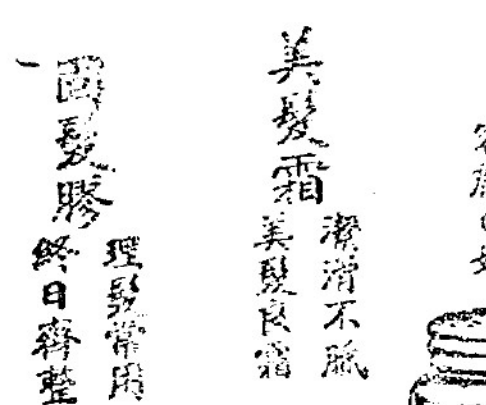 美髮霜
潔滑不膩
美髮良霜
固髮膠
理髮常用
終日齊整